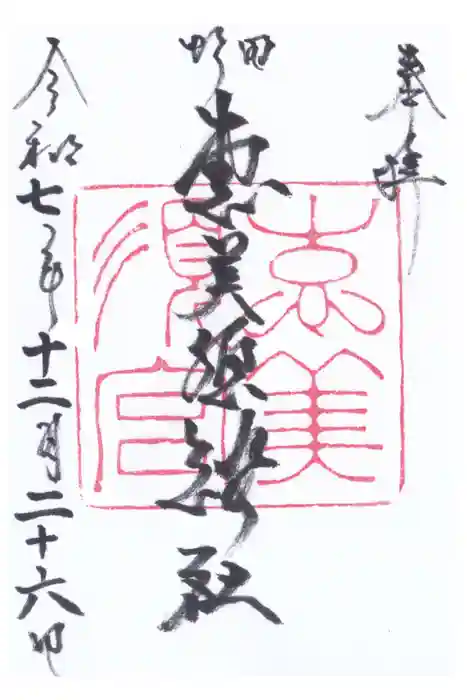 奉拝
野田
恵美須神社
恵美須宮
令和七年十二月二十六日